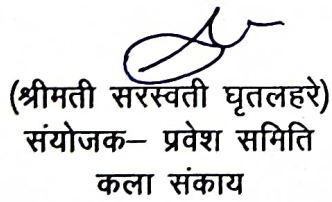 (श्रीमती सरस्वती घृतलहरे)
संयोजक– प्रवेश समिति
कला संकाय